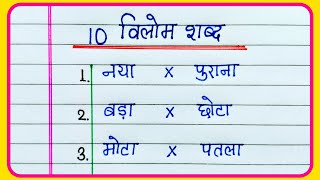 10 विलोम शब्द
1. नया x पुराना
2. बड़ा x छोटा
3. मोटा x पतला